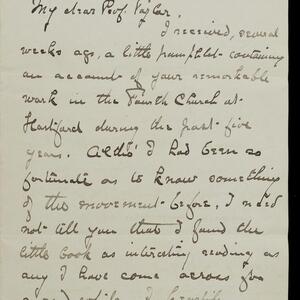 My dear Prof. Taylor,
I received, several
weeks ago, a little pamphlet containing
an account of your remarkable
work in the Fourth Church at
Hartford during the past five
years. Altho' I had been so
fortunate as to know something
of the movement before, I need
not tell you that I found the
little book as interesting reading as
any I have come across for
a good while. I